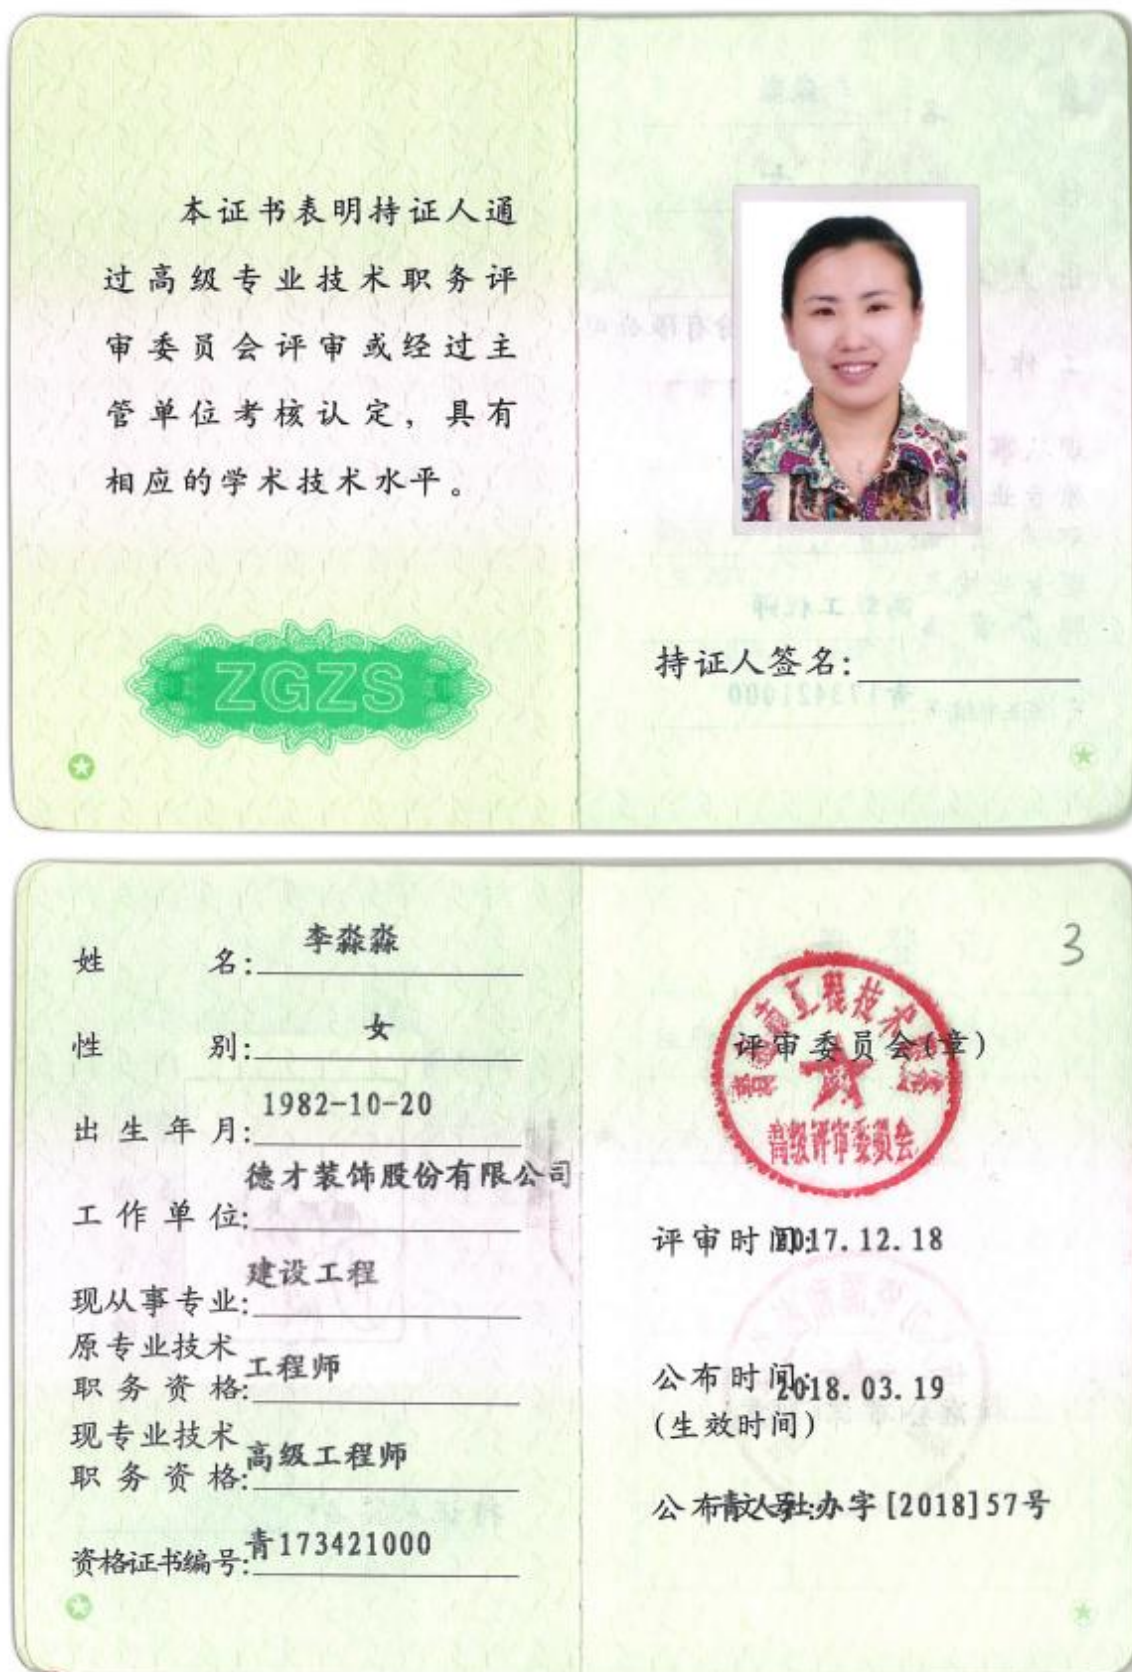 本证书表明持证人通
过高级专业技术职务评
审委员会评审或经过主
管单位考核认定，具有
相应的学术技术水平。
ZGZS
持证人签名:
姓名:李淼淼
性别:女
出生年月:1982-10-20
工作单位:德才装饰股份有限公司
现从事专业:建设工程
原专业技术
职务资格:工程师
现专业技术
职务资格:高级工程师
资格证书编号:青173421000
3
工程技术
评审委员会(章)
高级评审委员会
评审时间:2017.12.18
公布时间:2018.03.19
(生效时间)
公布文号:青人社办字[2018]57号